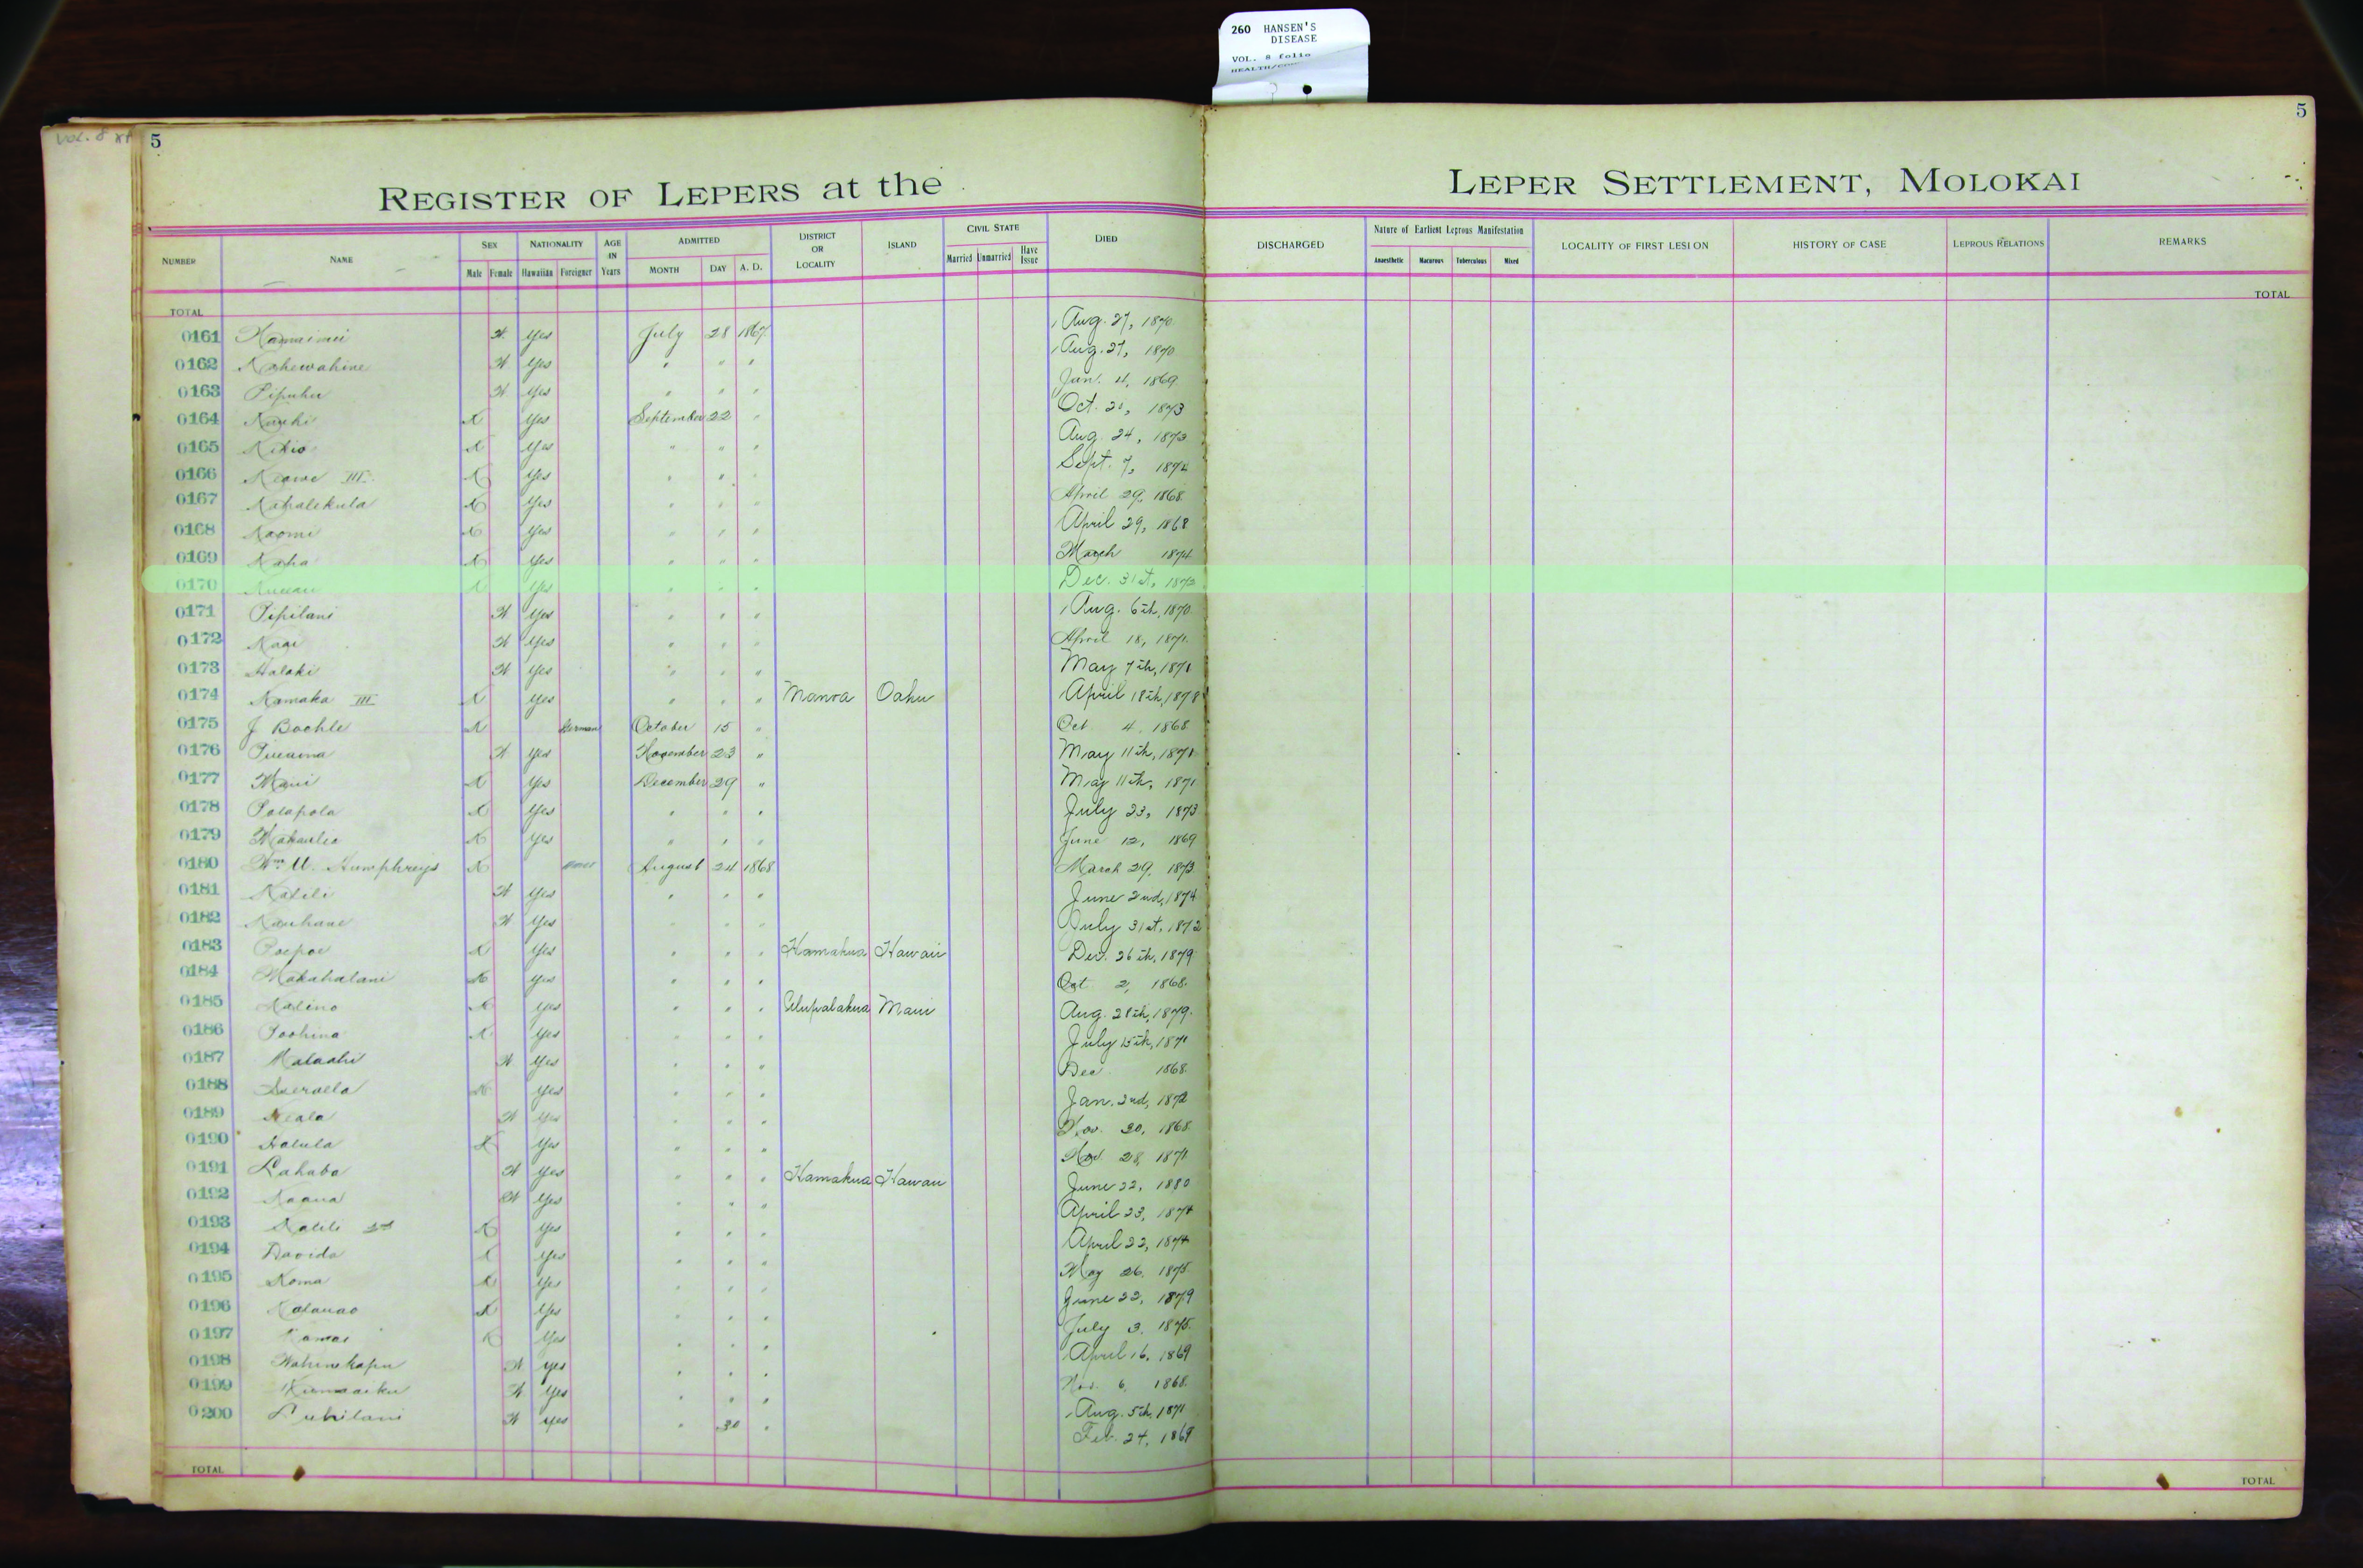 260 HANSEN'S
DISEASE
VOL. 8 folio
Vol. 8
5
5
REGISTER OF LEPERS at the LEPER SETTLEMENT, MOLOKAI
NUMBER NAME SEX Male Female NATIONALITY Hawaiian Foreigner AGE IN Years ADMITTED MONTH DAY A. D. DISTRICT OR LOCALITY ISLAND CIVIL STATE Married Unmarried Have Issue DIED DISCHARGED Nature of Earliest Leprous Manifestation Anaesthetic Macurous Tuberculous Mixed LOCALITY OF FIRST LESION HISTORY OF CASE LEPROUS RELATIONS REMARKS
TOTAL TOTAL
0161 Yes July 28 1867 Aug. 27, 1870
0162 Kahewahine Yes " " " Aug. 27, 1870
0163 Pipuhu Yes " " " Jan. 4, 1869
0164 Yes September 22 " Oct. 1873
0165 Kikio Yes " " " Aug. 24, 1873
0166 Keawe III Yes " " " Sept. 7,
0167 Kahalekula Yes " " " April 29, 1868
0168 Naomi Yes " " " April 29, 1868
0169 Kaha Yes " " " March 1874
0170 Yes " " " Dec. 31st,
0171 Pipilani Yes " " " Aug. 6th, 1870
0172 Yes " " " April 18, 1871
0173 Halaki Yes " " " May 7th, 1871
0174 Kamaka III Yes " " " Manoa Oahu April 18th, 1878
0175 J Boehle German October 15 " Oct 4, 1868
0176 Yes November 23 " May 11th, 1871
0177 Maui Yes December 29 " May 11th, 1871
0178 Polapola Yes " " " July 23, 1873
0179 Yes " " " June 12, 1869
0180 Wm. Humphreys August 24 1868 March 29, 1873
0181 Kalili Yes " " " June 2nd, 1874
0182 Kauhane Yes " " " July 31st, 1872
0183 Poepoe Yes " " " Hamakua Hawaii Dec. 26th, 1879
0184 Makahalani Yes " " " Oct 2, 1868
0185 Kalino Yes " " " Ulupalakua Maui Aug. 28th, 1879
0186 Poohina Yes " " " July 15th, 1871
0187 Yes " " " Dec 1868
0188 Yes " " " Jan. 2nd, 1872
0189 Yes " " " Nov. 30, 1868
0190 Halula Yes " " " Nov. 28, 1871
0191 Lahaba Yes " " " Hamakua Hawaii June 22, 1880
0192 Kaaua Yes " " " April 23, 1874
0193 Kalili 2nd Yes " " " April 22, 1874
0194 Davida Yes " " " May 26, 1875
0195 Koma Yes " " " June 22, 1879
0196 Kalauao Yes " " " July 3, 1875
0197 Kamai Yes " " " April 16, 1869
0198 Wahinekapu Yes " " " Nov. 6, 1868
0199 Yes " " " Aug. 5th, 1871
0200 Yes " 30 " Feb. 24, 1869
TOTAL TOTAL